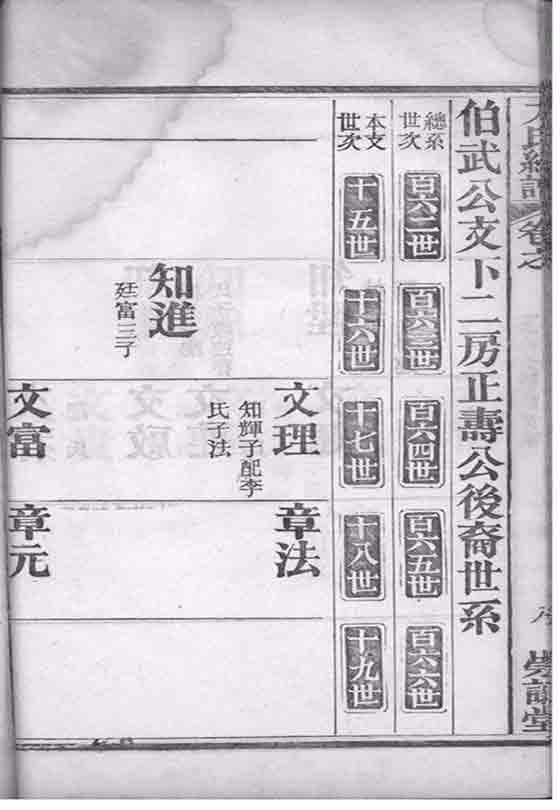 伯武公支下二房正壽公後裔世系
總系
世次
百六二世
百六三世
百六四世
百六五世
百六六世
本支
世次
十五世
十六世
十七世
十八世
十九世
知進
廷富三子
文理
知輝子配李
氏子法
文富
章法
章元